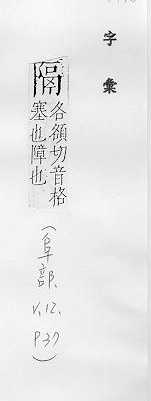 字彙
隔
各額切音格
塞也障也
(阜部.
V.12.
P.37)